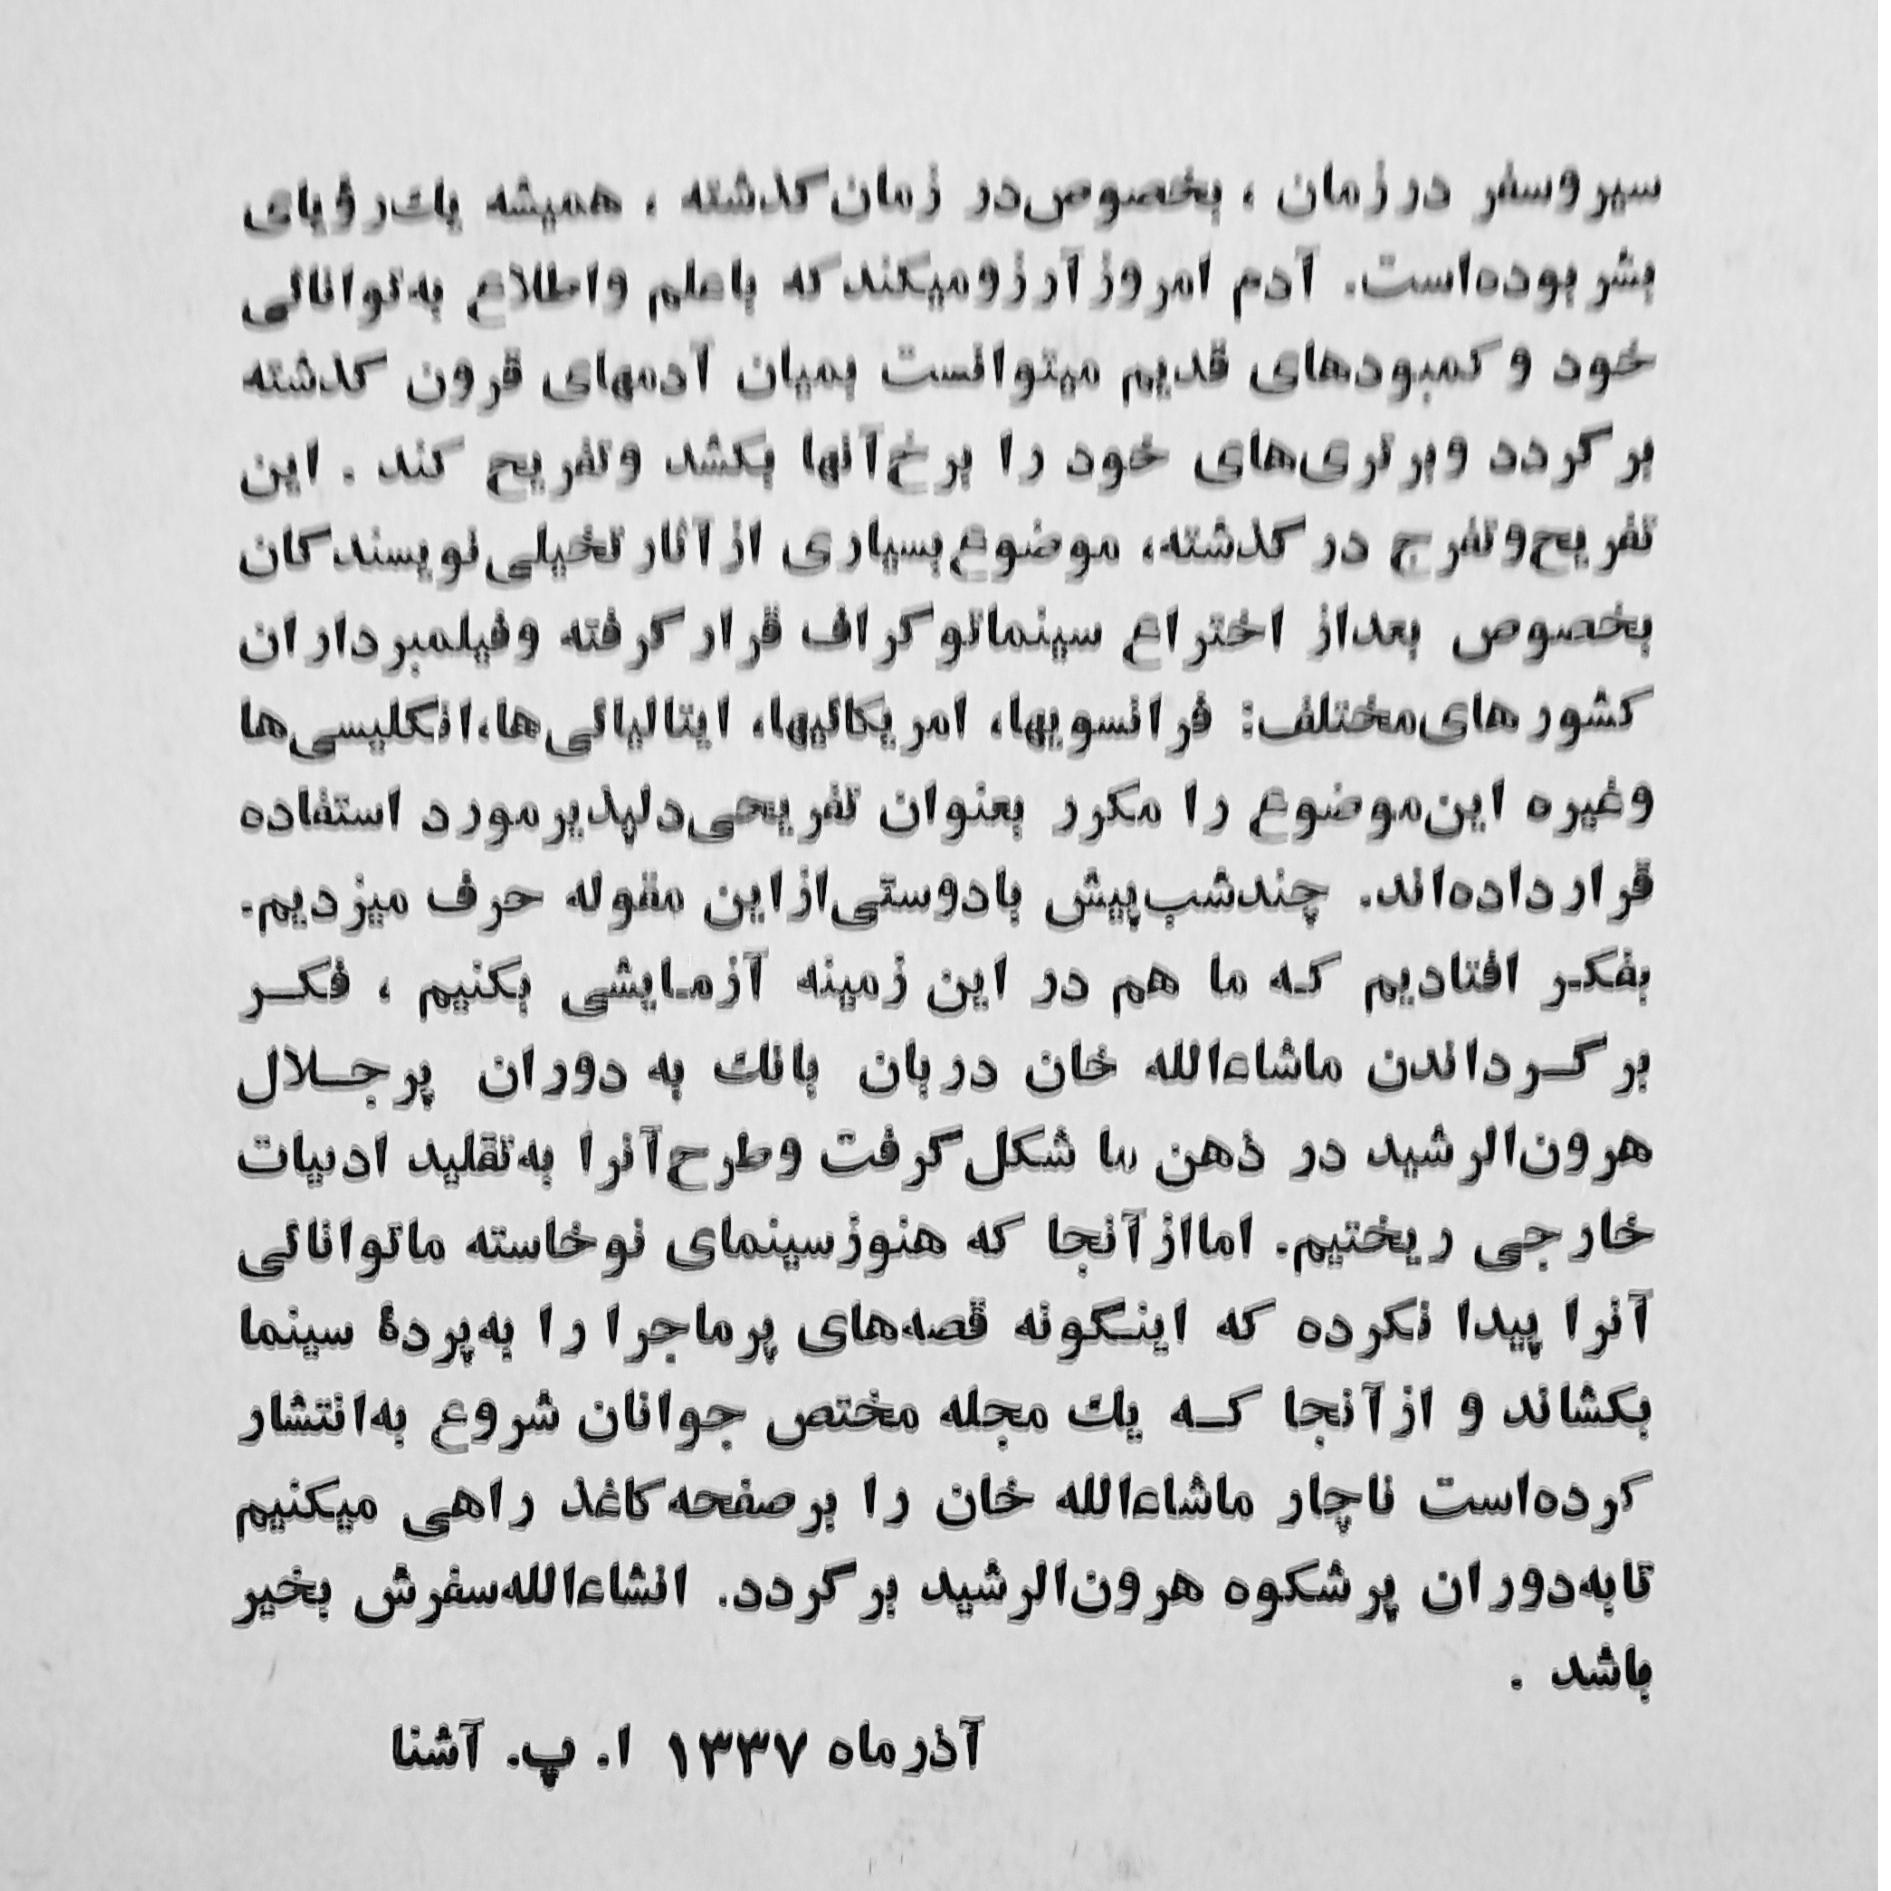 سیر وسفر در زمان ، بخصوص در زمان گذشته ، همیشه یك رؤیای
بشر بوده‌است. آدم امروز آرزو میکند که باعلم واطلاع به‌توانائی
خود و کمبودهای قدیم میتوانست بمیان آدمهای قرون گذشته
بر گردد وبرتری‌های خود را برخ‌آنها بکشد وتفریح کند . این
تفریح‌وتفرج در گذشته، موضوع بسیاری از آثار تخیلی نویسندگان
بخصوص بعداز اختراع سینماتوگراف قرار گرفته وفیلمبرداران
کشورهای‌مختلف: فرانسویها، امریکائیها، ایتالیائی‌ها،انگلیسی‌ها
وغیره این‌موضوع را مکرر بعنوان تفریحی‌دلپذیر مورد استفاده
قرار داده‌اند. چندشب‌پیش بادوستی‌ازاین مقوله حرف میزدیم.
بفکـر افتادیم کـه ما هم در این زمینه آزمـایشی بکنیم ، فکـر
برگـرداندن ماشاءالله خان دربان بانك به دوران پرجـلال
هرون‌الرشید در ذهن ما شکل گرفت وطرح‌آنرا به‌تقلید ادبیات
خارجی ریختیم. امااز آنجا که هنوز سینمای نوخاسته ماتوانائی
آنرا پیدا نکرده که اینگونه قصه‌های پرماجرا را به‌پردهٔ سینما
بکشاند و از آنجا کـه یك مجله مختص جوانان شروع به‌انتشار
کرده‌است ناچار ماشاءالله خان را برصفحه کاغذ راهی میکنیم
تابه‌دوران پرشکوه هرون‌الرشید بر گردد. انشاءالله‌سفرش بخیر
باشد .
آذرماه ۱۳۳۷ ا. پ. آشنا